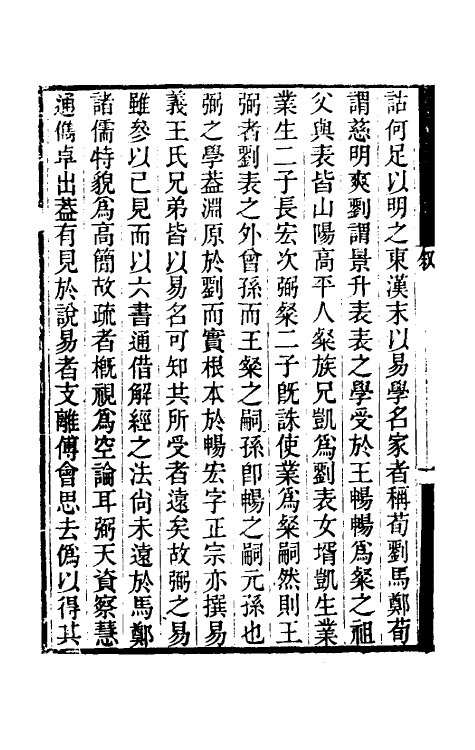 詁何足以明之東漢末以易學名家者稱荀劉馬鄭荀
謂慈明爽劉謂景升表表之學受於王暢暢爲粲之祖
父與表皆山陽高平人粲族兄凱爲劉表女壻凱生業
業生二子長宏次弼粲二子旣誅使業爲粲嗣然則王
弼者劉表之外曾孫而王粲之嗣孫卽暢之嗣元孫也
弼之學蓋淵原於劉而實根本於暢宏字正宗亦撰易
義王氏兄弟皆以易名可知其所受者遠矣故弼之易
雖參以己見而以六書通借解經之法尙未遠於馬鄭
諸儒特貌爲高簡故疏者槪視爲空論耳弼天資察慧
通儁卓出蓋有見於說易者支離傅會思去僞以得其
叙
一